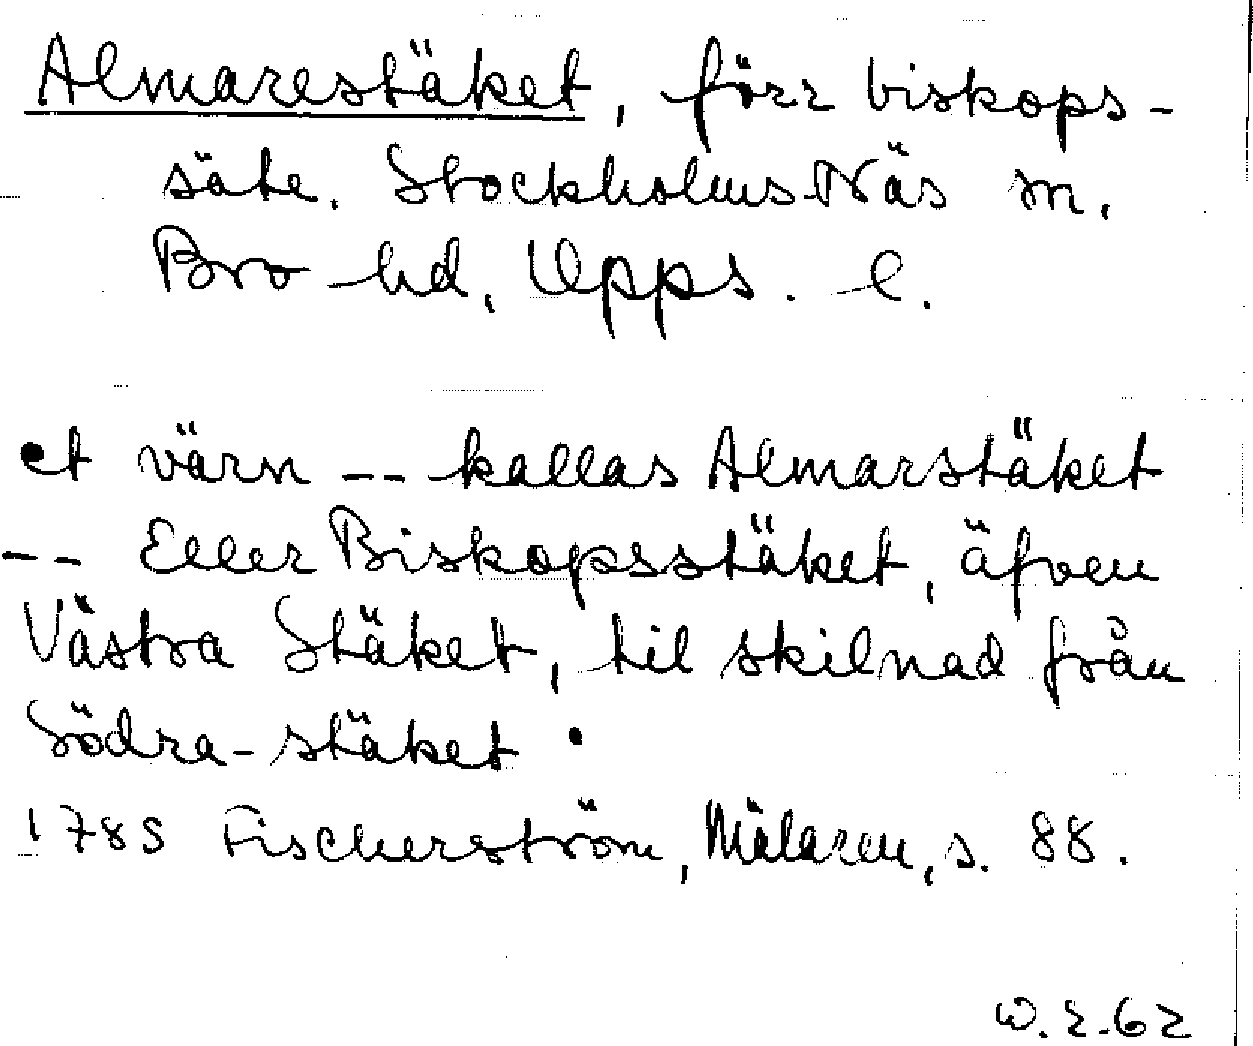 Almarestäket, förr biskops-
säte. Stockholms-Näs sn.
Bro hd, Upps. l.
et värn -- kallas Almarstäket
-- Eller Biskopsstäket, äfven
Västra Stäket, til skilnad från
Södra-stäket.
1785 Fischerström, Mälaren, s. 88.
W. E. 62